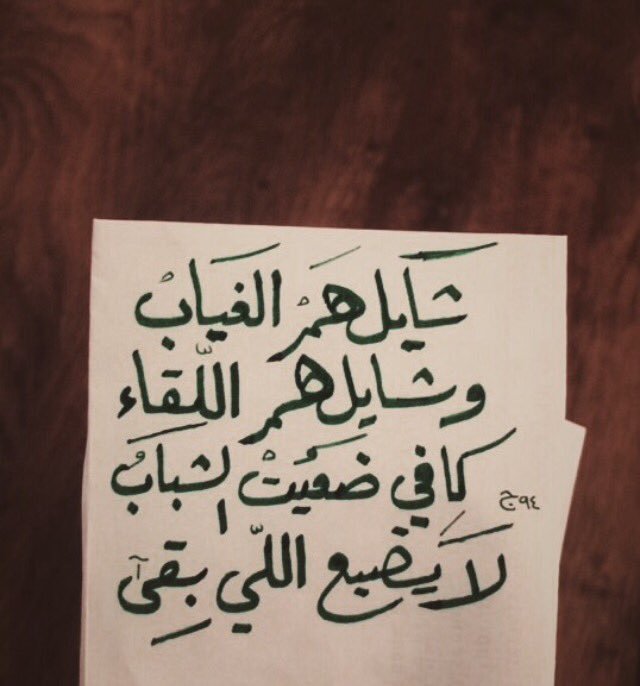 شَايل هَمْ الغيَابْ
وشايل هم اللّقاء
كَافي ضَعَيتْ الشبابُ
لاَ يَضيع اللّي بِقىٓ
ج٩٤